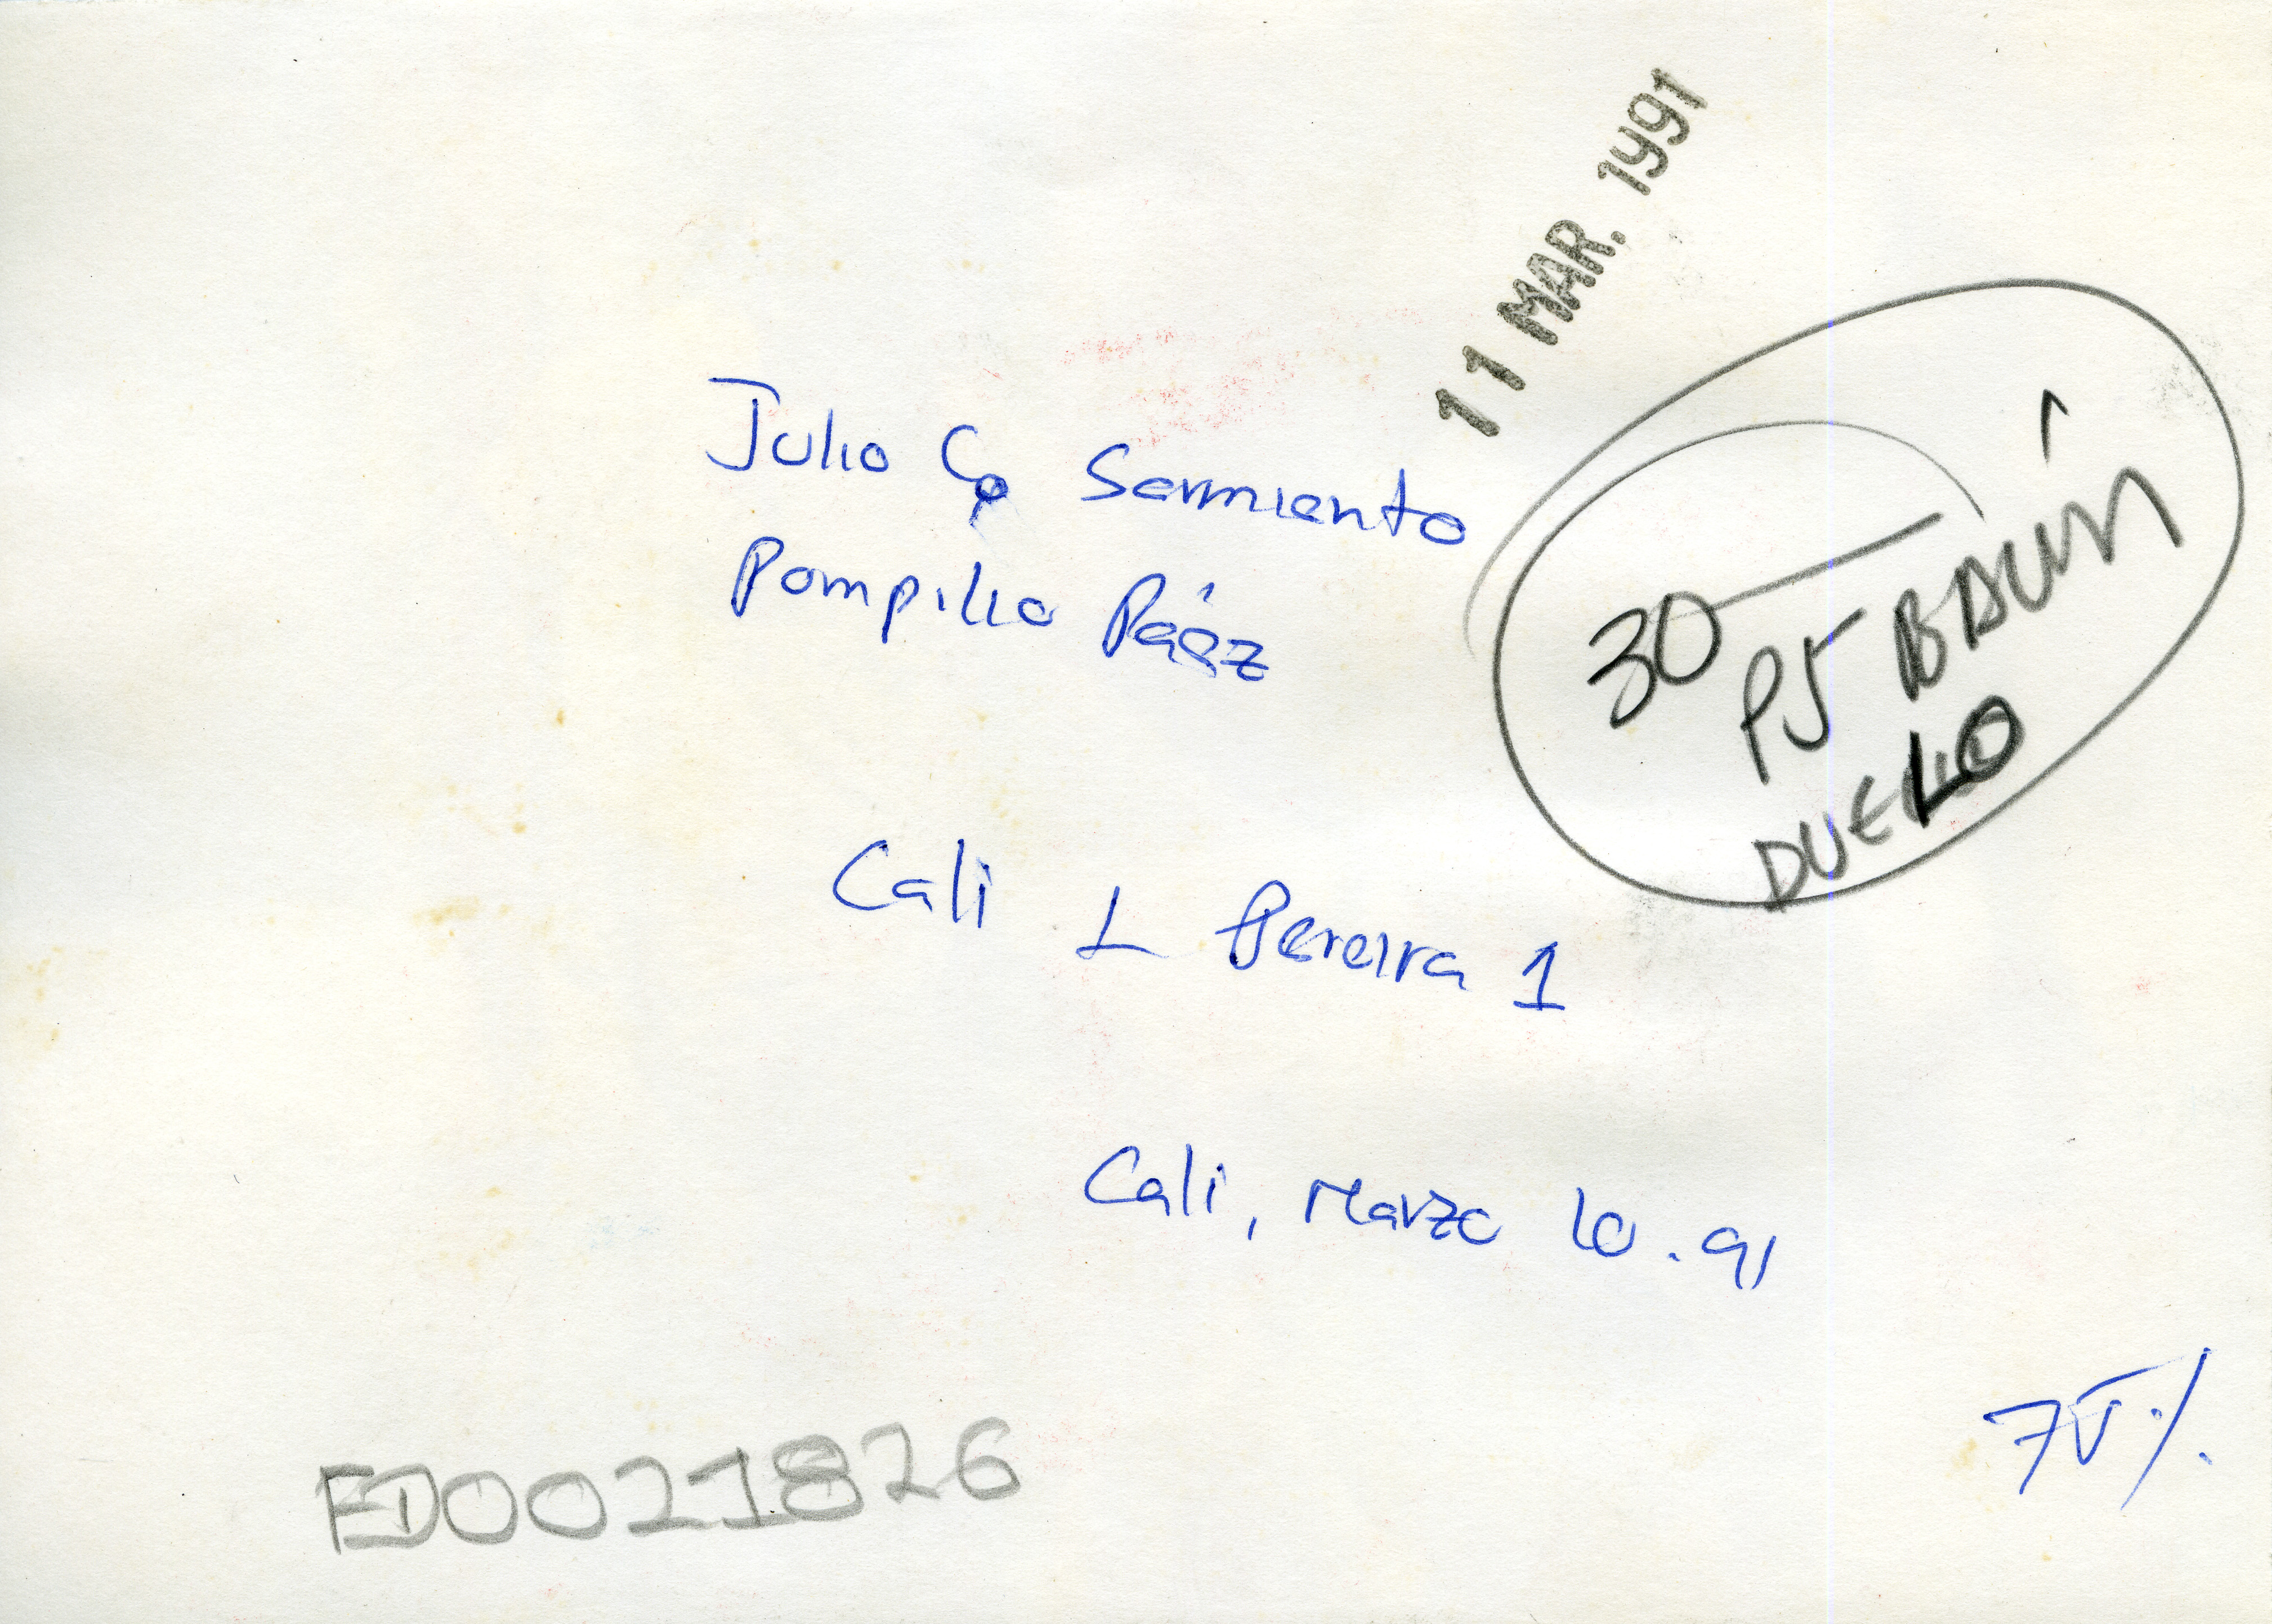 11 MAR. 1991
Julio C. Sarmiento
Pompilio Páez
30
PJ BAÚN
DUELO
Cali 1 Pereira 1
Cali, Marzo 10. 91
75%
FD0021826